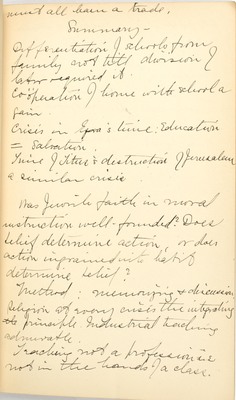 must all learn a trade.
Summary—
Differentiation of schools from
family not till division of
labor required it.
Coöperation of home with school a
gain.
Crisis in Ezra's time. Education
= Salvation.
Time of Titus & destruction of Jerusalem
a similar crisis
Was Jewish faith in moral
instruction well-founded? Does
belief determine action, or does
action ingrained into habit
determine belief?
Method: memorizing & discussion
Religion at every crisis the integrating
principle. Industrial teaching
admirable.
Teaching not a profession
not in the hands of a class.